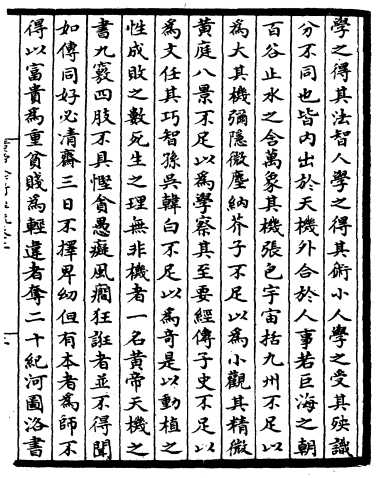 學之得其法智人學之得其術小人學之受其殃識
分不同也皆内出於天機外合於人事若巨海之朝
百谷止水之含萬象其機張包宇宙括九州不足以
為大其機彌隱微塵納芥子不足以為小觀其精微
黃庭八景不足以為學察其至要經傳子史不足以
為文任其巧智孫吳韓白不足以為奇是以動植之
性成敗之數死生之理無非機者一名黃帝天機之
書九竅四肢不具慳貪愚癡風癇狂誑者並不得聞
如傳同好必清齋三日不擇卑幼但有本者為師不
得以富貴為重貧賤為輕違者奪二十紀河圖洛書